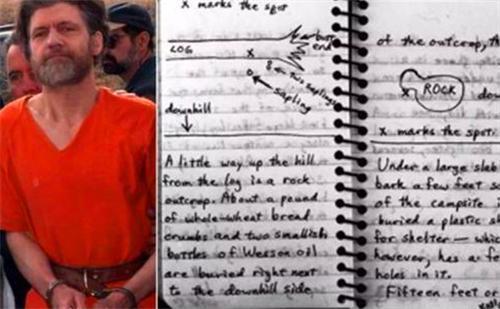 x marks the spot
LOG
x
burnt
end
two saplings
sapling
downhill
A little way up the hill
from the log is a rock
outcrop. About a pound
of whole-wheat bread
crumbs and two smallish
bottles of Wesson oil
are buried right next
to the downhill side
of the outcrop, th
x
ROCK
dow
x marks the spot.
Under a large slab
back a few feet
of the campsite
buried a plastic
for shelter — whic
however, has a fe
holes in it.
Fifteen feet or